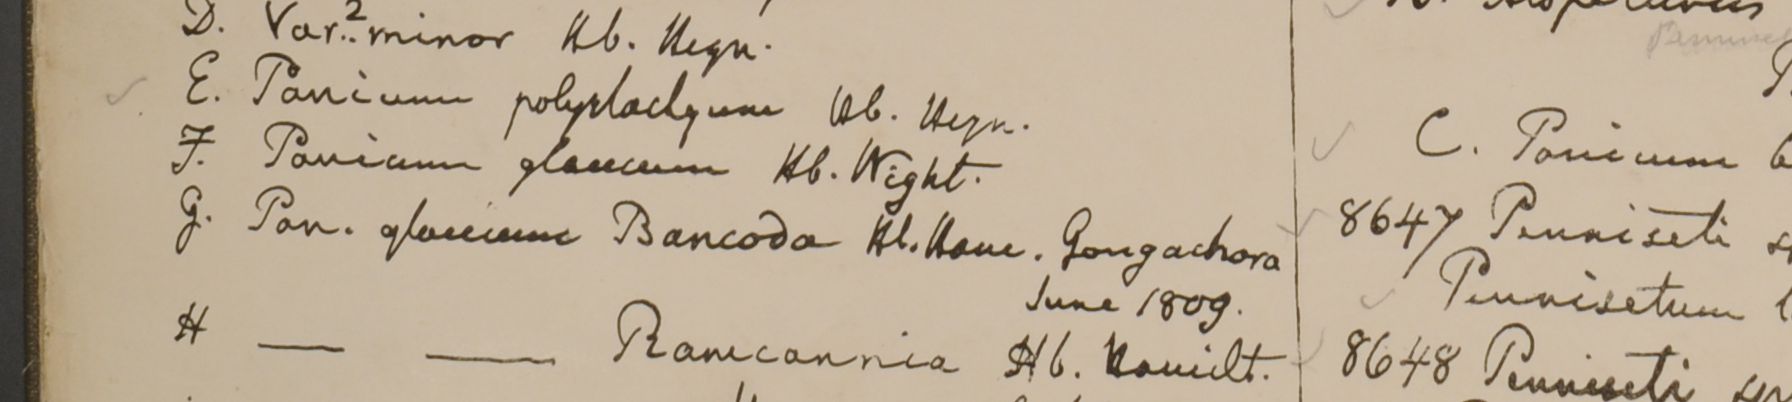 D. Var. 2 minor Hb. Heyn.
E. Panicum polystachyum Hb. Heyn.
F. Panicum glaucum Hb. Wight.
G. Pan. glaucum Bancoda Hb. Ham. Gongachora
June 1809.
H — — Ramcannia Hb. Hamilt.
C. Panicum
8647 Penniseti
Pennisetum
8648 Penniseti